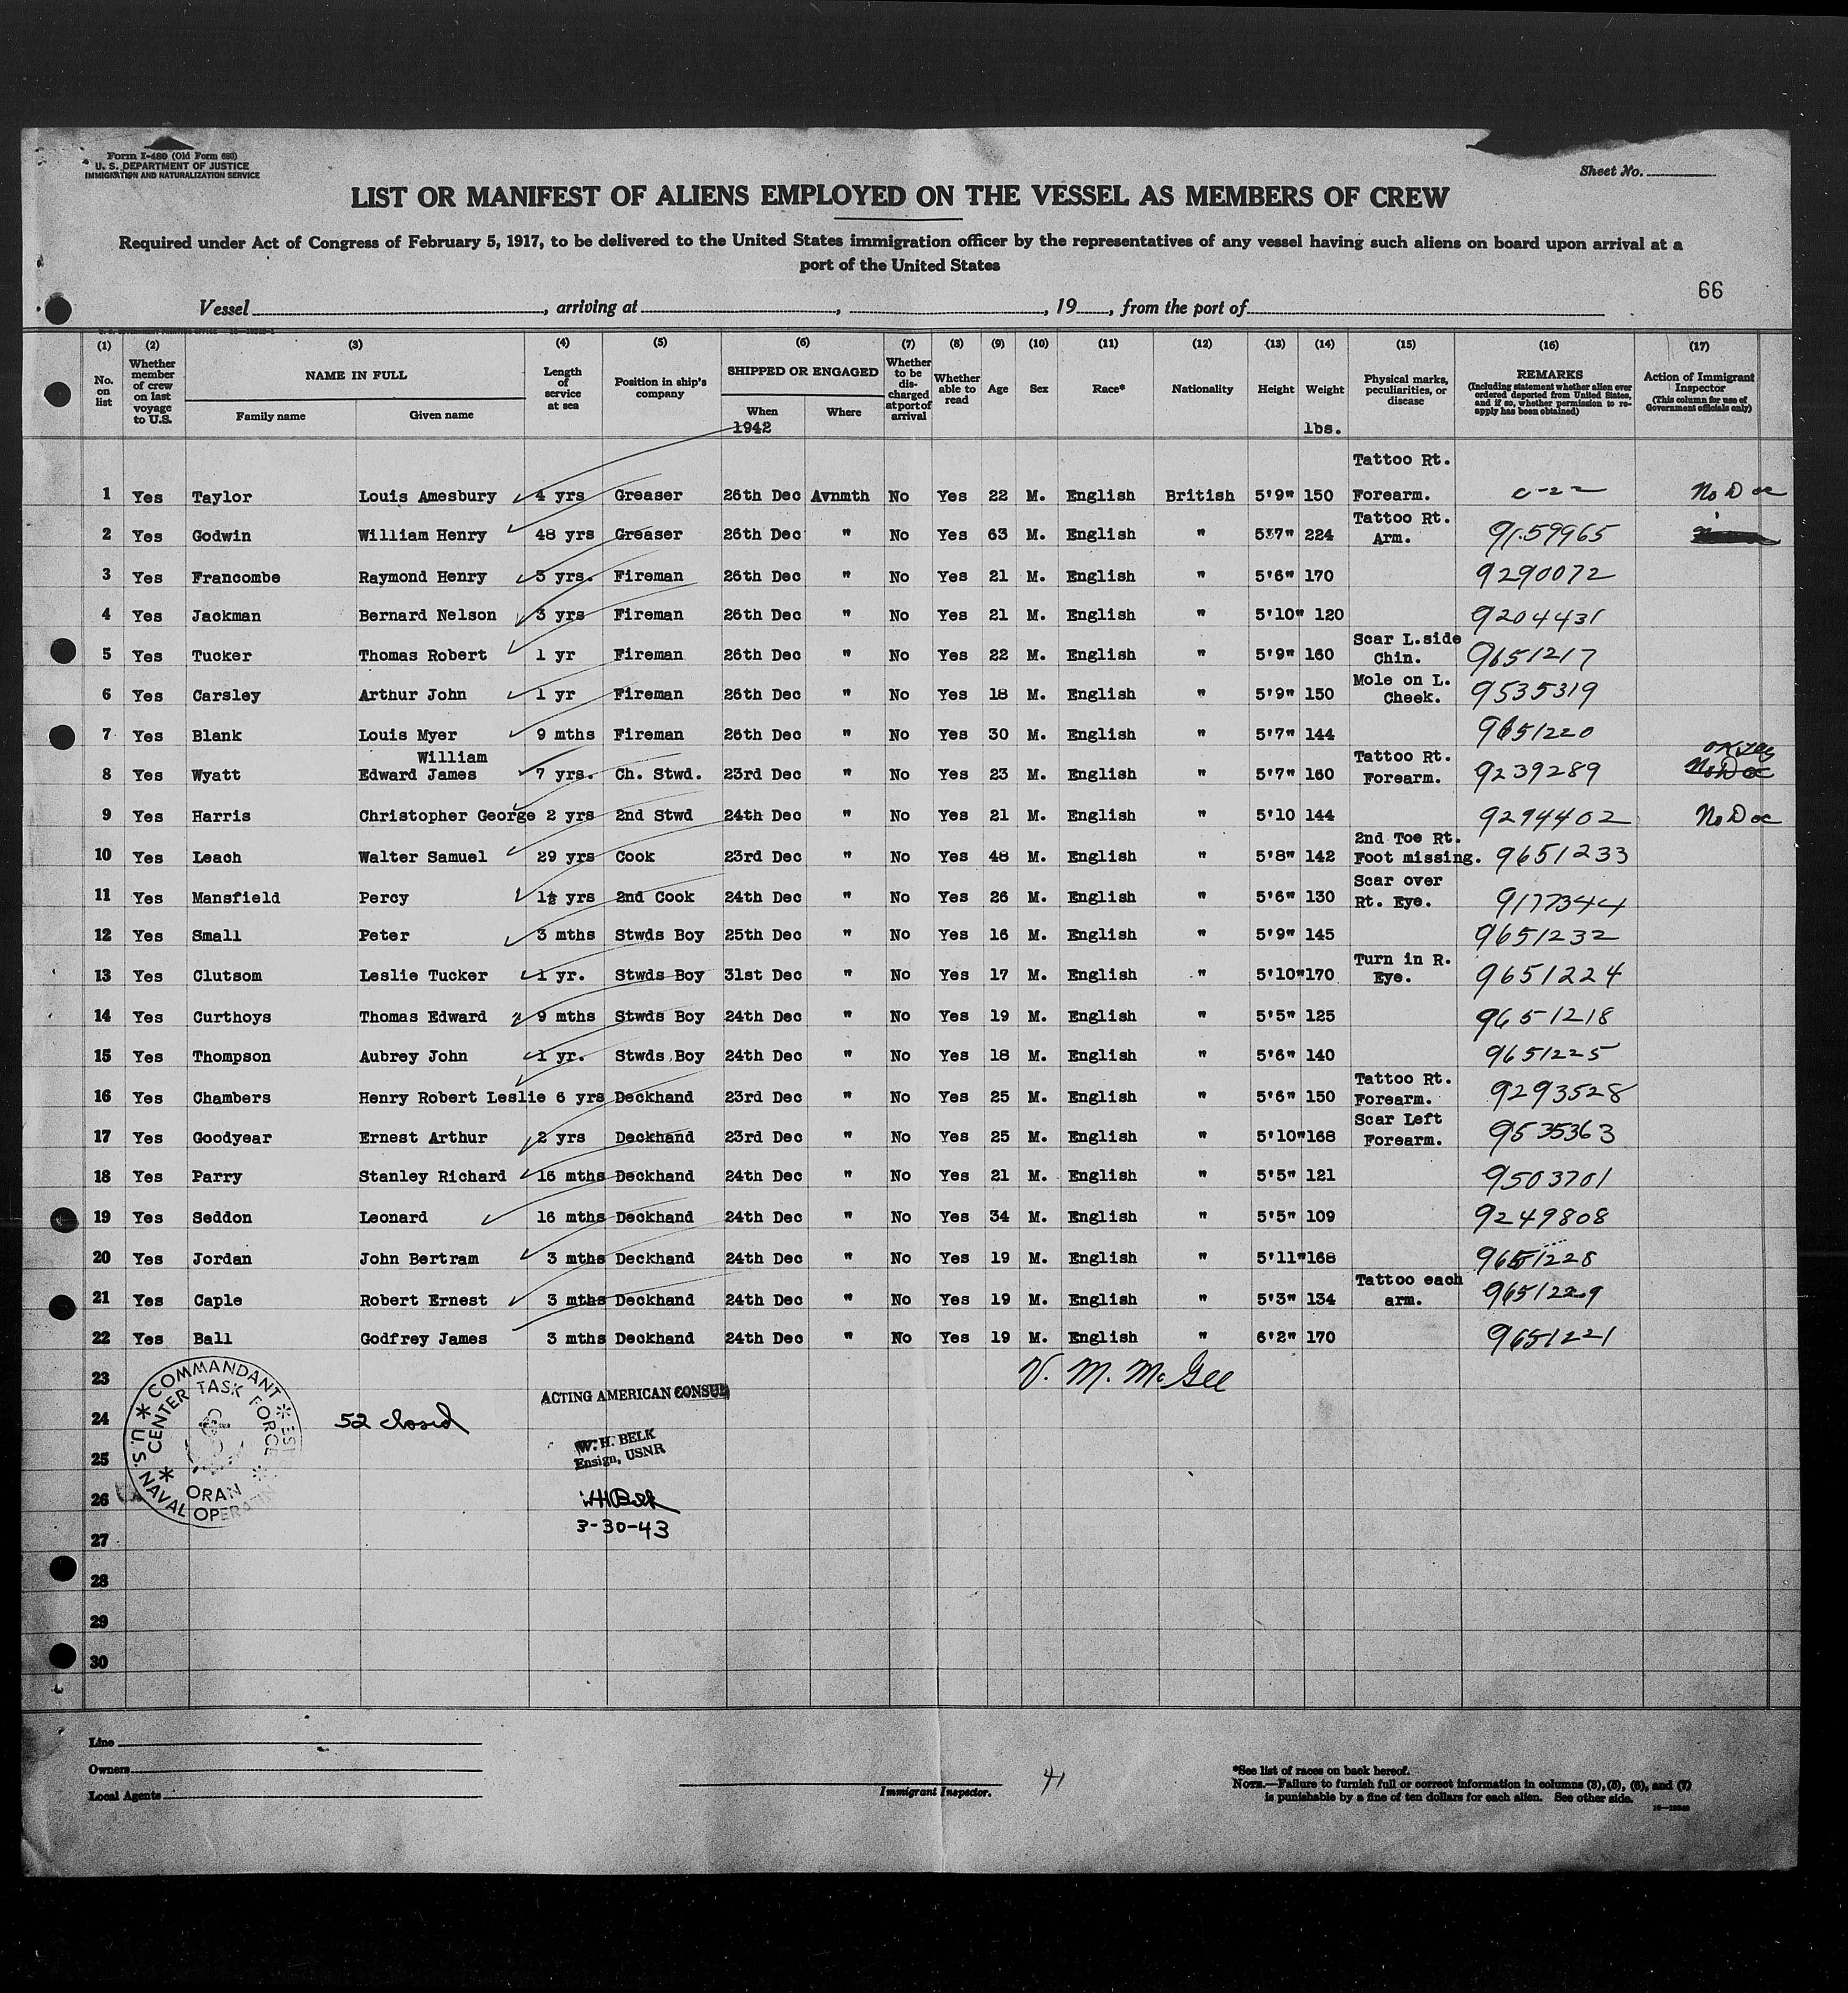 Form I-480 (Old Form 680)
U. S. DEPARTMENT OF JUSTICE
IMMIGRATION AND NATURALIZATION SERVICE
Sheet No.
LIST OR MANIFEST OF ALIENS EMPLOYED ON THE VESSEL AS MEMBERS OF CREW
Required under Act of Congress of February 5, 1917, to be delivered to the United States immigration officer by the representatives of any vessel having such aliens on board upon arrival at a
port of the United States
66
Vessel , arriving at , , 19 , from the port of
(1) (2) (3) (4) (5) (6) (7) (8) (9) (10) (11) (12) (13) (14) (15) (16) (17)
No. on list Whether member of crew on last voyage to U.S. NAME IN FULL Family name Given name Length of service at sea Position in ship's company SHIPPED OR ENGAGED When Where Whether to be discharged at port of arrival Whether able to read Age Sex Race* Nationality Height Weight Physical marks, peculiarities, or disease REMARKS (Including statement whether alien ever ordered deported from United States, and if so, whether permission to reapply has been obtained) Action of Immigrant Inspector (This column for use of Government officials only)
1942 lbs.
Tattoo Rt.
1 Yes Taylor Louis Amesbury 4 yrs Greaser 26th Dec Avnmth No Yes 22 M. English British 5'9" 150 Forearm. No Doc
Tattoo Rt.
2 Yes Godwin William Henry 48 yrs Greaser 26th Dec " No Yes 63 M. English " 5'7" 224 Arm. 9159965
3 Yes Francombe Raymond Henry 5 yrs. Fireman 26th Dec " No Yes 21 M. English " 5'6" 170 9290072
4 Yes Jackman Bernard Nelson 3 yrs Fireman 26th Dec " No Yes 21 M. English " 5'10" 120 9204431
Scar L.side
5 Yes Tucker Thomas Robert 1 yr Fireman 26th Dec " No Yes 22 M. English " 5'9" 160 Chin. 9651217
Mole on L.
6 Yes Carsley Arthur John 1 yr Fireman 26th Dec " No Yes 18 M. English " 5'9" 150 Cheek. 9535319
7 Yes Blank Louis Myer 9 mths Fireman 26th Dec " No Yes 30 M. English " 5'7" 144 9651220
William Tattoo Rt.
8 Yes Wyatt Edward James 7 yrs. Ch. Stwd. 23rd Dec " No Yes 23 M. English " 5'7" 160 Forearm. 9239289 No Doc
9 Yes Harris Christopher George 2 yrs 2nd Stwd 24th Dec " No Yes 21 M. English " 5'10 144 9294402 No Doc
2nd Toe Rt.
10 Yes Leach Walter Samuel 29 yrs Cook 23rd Dec " No Yes 48 M. English " 5'8" 142 Foot missing. 9651233
Scar over
11 Yes Mansfield Percy 1½ yrs 2nd Cook 24th Dec " No Yes 26 M. English " 5'6" 130 Rt. Eye. 9177344
12 Yes Small Peter 3 mths Stwds Boy 25th Dec " No Yes 16 M. English " 5'9" 145 9651232
Turn in R.
13 Yes Clutsom Leslie Tucker 1 yr. Stwds Boy 31st Dec " No Yes 17 M. English " 5'10" 170 Eye. 9651224
14 Yes Curthoys Thomas Edward 9 mths Stwds Boy 24th Dec " No Yes 19 M. English " 5'5" 125 9651218
15 Yes Thompson Aubrey John 1 yr. Stwds Boy 24th Dec " No Yes 18 M. English " 5'6" 140 9651225
Tattoo Rt.
16 Yes Chambers Henry Robert Leslie 6 yrs Deckhand 23rd Dec " No Yes 25 M. English " 5'6" 150 Forearm. 9293528
Scar Left
17 Yes Goodyear Ernest Arthur 2 yrs Deckhand 23rd Dec " No Yes 25 M. English " 5'10" 168 Forearm. 9535363
18 Yes Parry Stanley Richard 16 mths Deckhand 24th Dec " No Yes 21 M. English " 5'5" 121 9503701
19 Yes Seddon Leonard 16 mths Deckhand 24th Dec " No Yes 34 M. English " 5'5" 109 9249808
20 Yes Jordan John Bertram 3 mths Deckhand 24th Dec " No Yes 19 M. English " 5'11" 168 9651228
Tattoo each
21 Yes Caple Robert Ernest 3 mths Deckhand 24th Dec " No Yes 19 M. English " 5'3" 134 arm. 9651229
22 Yes Ball Godfrey James 3 mths Deckhand 24th Dec " No Yes 19 M. English " 6'2" 170 9651221
23 V. M. McGee
ACTING AMERICAN CONSUL
24 52 closed
25 W. H. BELK
Ensign, USNR
26 WHBelk
3-30-43
27
28
29
30
COMMANDANT
CENTER TASK FORCE
ORAN
U.S. NAVAL OPERATIN
Line
Owners
Local Agents
Immigrant Inspector.
41
*See list of races on back hereof.
NOTE.—Failure to furnish full or correct information in columns (3), (5), (6), and (7)
is punishable by a fine of ten dollars for each alien. See other side.